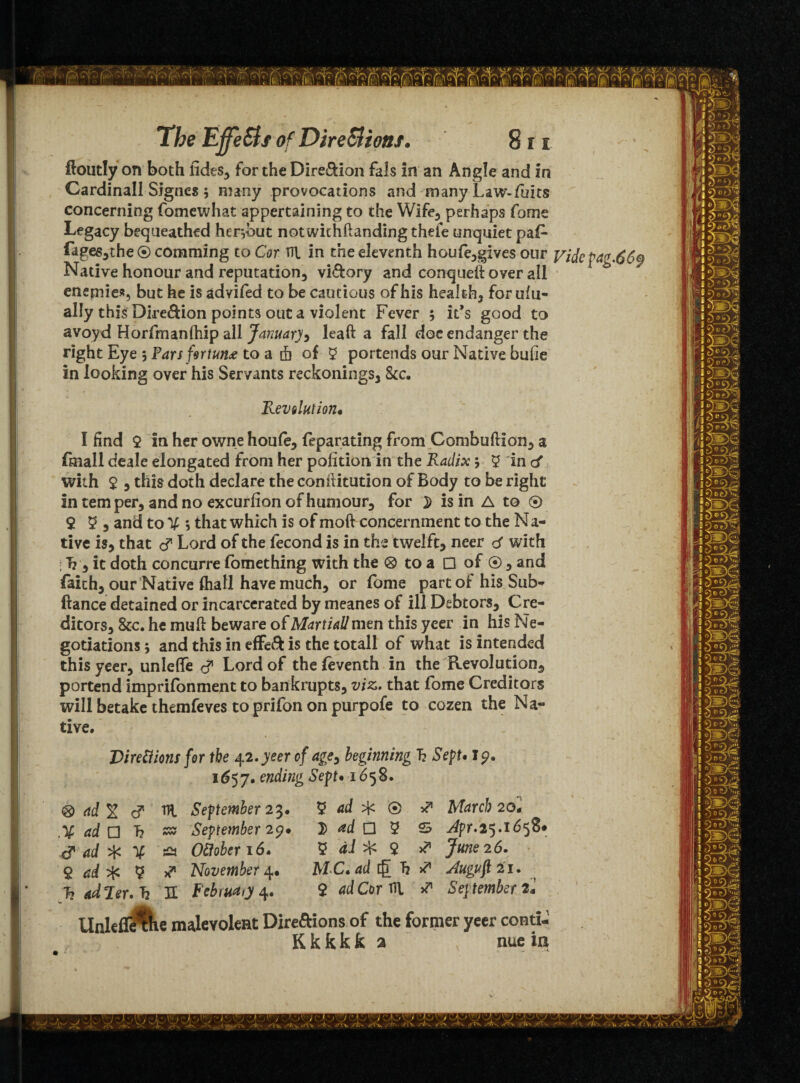 The Effects of Directions. 811
ſtoutly on both ſides, for the Direction fals in an Angle and in
Cardinall Signes; many provocations and many Law-ſuits
concerning ſomewhat appertaining to the Wife, perhaps ſome
Legacy bequeathed her; but notwithſtanding theſe unquiet paſ-
ſages, the ☉ comming to Cor ♏ in the eleventh houſe, gives our Vide pag. 669
Native honour and reputation, victory and conqueſt over all
enemies, but he is adviſed to be cautious of his health, for uſu-
ally this Direction points out a violent Fever; it's good to
avoyd Horſmanſhip all January, leaſt a fall doe endanger the
right Eye; Pars fortunæ to a ⚼ of ☿ portends our Native buſie
in looking over his Servants reckonings, &c.
Revolution.
I find ♀ in her owne houſe, ſeparating from Combuſtion, a
ſmall deale elongated from her poſition in the Radix; ☿ in ☌
with ♀, this doth declare the conſtitution of Body to be right
in temper, and no excurſion of humour, for ☽ is in △ to ☉
♀ ☿, and to ♃; that which is of moſt concernment to the Na-
tive is, that ♂ Lord of the ſecond is in the twelft, neer ☌ with
♄, it doth concurre ſomething with the ⊗ to a □ of ☉, and
faith, our Native ſhall have much, or ſome part of his Sub-
ſtance detained or incarcerated by meanes of ill Debtors, Cre-
ditors, &c. he muſt beware of Martiall men this yeer in his Ne-
gotiations; and this in effect is the totall of what is intended
this yeer, unleſſe ♂ Lord of the ſeventh in the Revolution,
portend impriſonment to bankrupts, viz. that ſome Creditors
will betake themſeves to priſon on purpoſe to cozen the Na-
tive.
Directions for the 42. yeer of age, beginning ♄ Sept. 19.
1657. ending Sept. 1658.
⊗ ad ♂ ♏ September 23. ☿ ad ⚹ ☉ ♐ March 20.
♃ ad □ ♄ ♒ September 29. ☽ ad □ ☿ ♋ Apr. 25. 1658.
♂ ad ⚹ ♃ ♎ October 16. ☿ ad ⚹ ♀ ♐ June 26.
♀ ad ⚹ ☿ ♐ November 4. M.C. ad ♄ ♐ Auguſt 21.
♄ ad Ter. ♄ ♊ February 4. ♀ ad Cor ♏ ♐ September 2.
Unleſſe the malevolent Directions of the former yeer conti-
Kkkkk 2 nue in